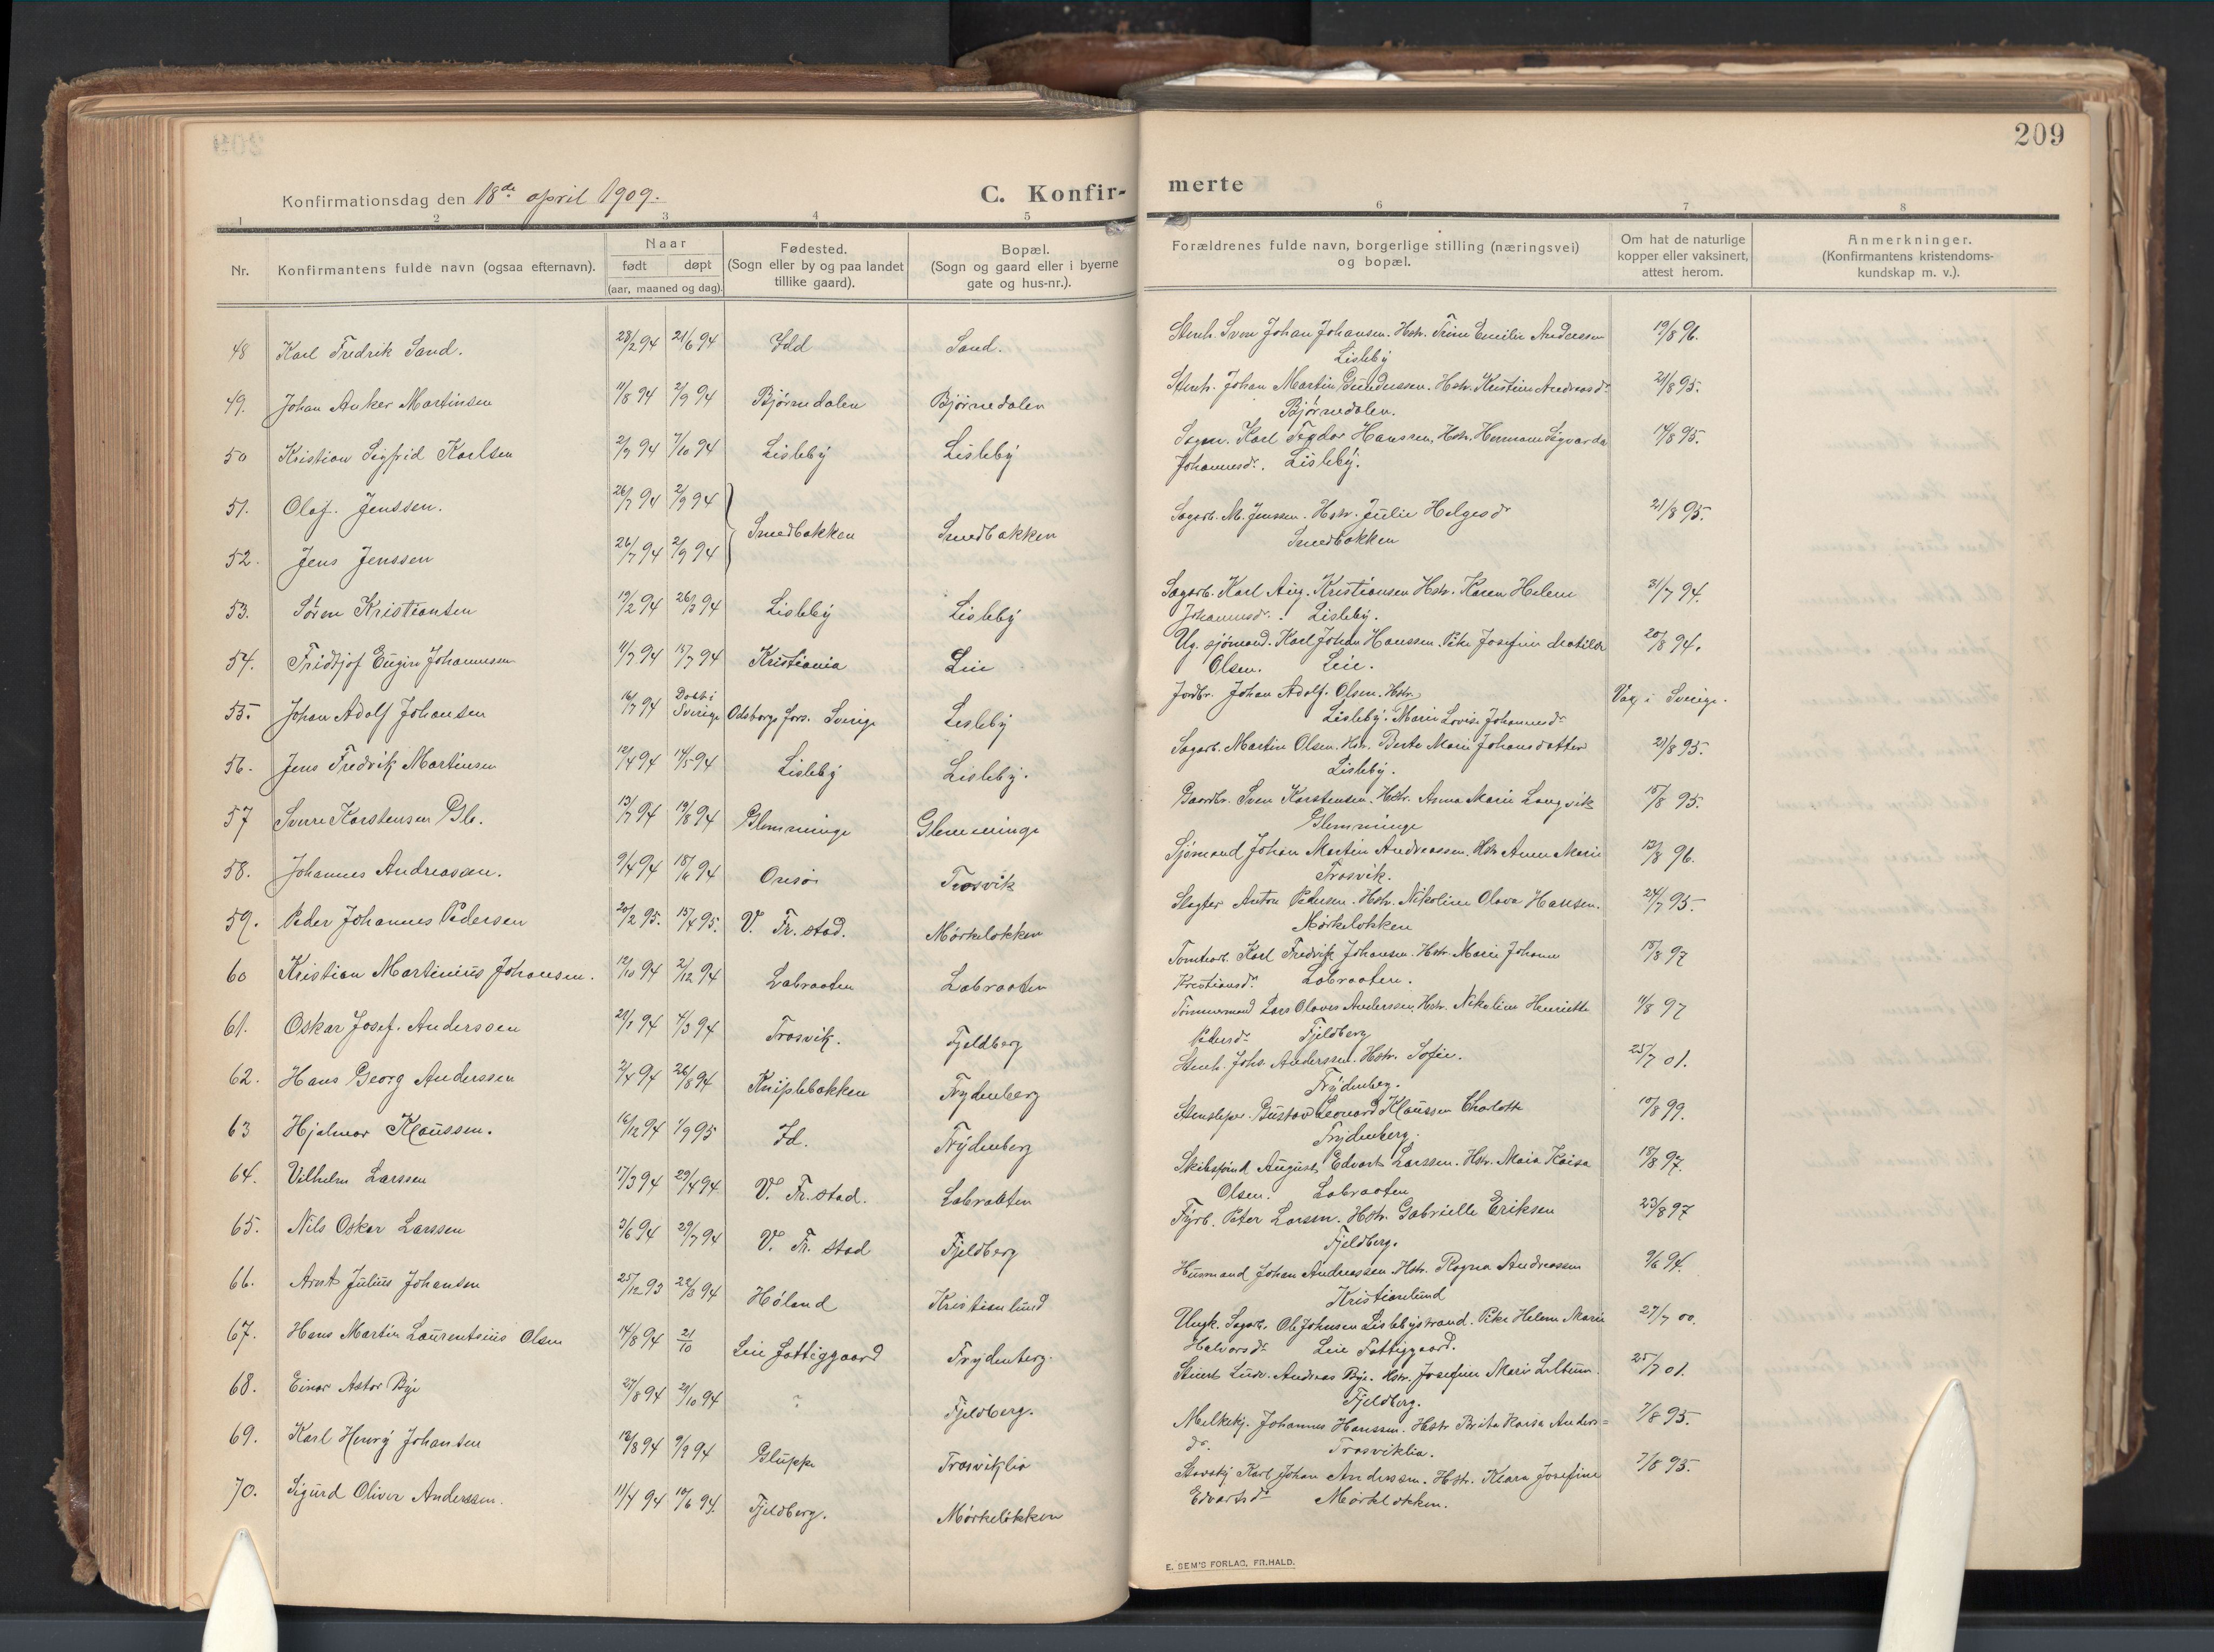 209
Konfirmationsdag den 18de april 1909.
C. Konfir-
merte
1 2 3 4 5 6 7 8
Nr.
Konfirmantens fulde navn (ogsaa efternavn).
Naar
født døpt
(aar, maaned og dag).
Fødested.
(Sogn eller by og paa landet
tillike gaard).
Bopæl.
(Sogn og gaard eller i byerne
gate og hus-nr.).
Forældrenes fulde navn, borgerlige stilling (næringsvei)
og bopæl.
Om hat de naturlige
kopper eller vaksinert,
attest herom.
Anmerkninger.
(Konfirmantens kristendoms-
kundskap m. v.).
48 Karl Fredrik Sand. 28/2 94 21/6 94 Idd Sand. Stenh. Sven Johan Johansen. Hstr. Trine Emilie Anderssen 19/8 96.
Lisleby
49. Johan Anker Martinsen 11/8 94 2/9 94 Bjørnedalen Bjørnedalen Stenh. Johan Martin Gundersen. Hstr. Kristine Andreasdr 21/8 95.
Bjørnedalen.
50 Kristian Sigfrid Karlsen 2/9 94 7/10 94 Lisleby Lisleby Karl Teodor Hanssen, Hstr. Hermane Sigvarda 14/8 95.
Johannesdr. Lisleby.
51. Olaf. Jenssen. 26/7 94 2/9 94 Smedbakken Smedbakken Sagarb. M. Jenssen. Hstr. Julie Helgesdr 21/8 95.
Smedbakken
52. Jens Jenssen 26/7 94 2/9 94
53. Søren Kristiansen 19/2 94 26/3 94 Lisleby Lisleby Sagarb. Karl Aug. Kristiansen Hstr. Karen Helene 31/7 94.
Johannesdr. Lisleby.
54. Fridtjof Eugin Johannesen 11/7 94 15/7 94 Kristiania Leie Ug. sjømand. Karl Johan Hanssen. Pike Josefine Matilde 20/8 94.
Olsen. Leie.
55. Johan Adolf Johansen 16/7 94 Døbt i Sverige Odsborgs fors. Sverige Lisleby Jordbr. Johan Adolf. Olsen. Hstr. Vax i Sverige.
Lisleby. Marie Lovise Johannesdr
56. Jens Fredrik Martinsen 12/4 94 14/5 94 Lisleby Lisleby. Sagarb. Martin Olsen. Hstr. Berte Marie Johansdatter 21/8 95.
Lisleby.
57 Sverre Karstensen Gl. 13/7 94 19/8 94 Glemminge Glemminge Gaardbr. Sven Karstensen. Hstr. Anna Marie Langvik 15/8 95.
Glemminge
58. Johannes Andreassen. 9/4 94 18/6 94 Onsø Trosvik Sjømand Johan Martin Andreassen. Hstr Anne Marie 12/8 96.
Trosvik.
59. Peder Johannes Pedersen 20/2 95. 15/4 95. V. Fr. stad. Mørkeløkken Slagter Anton Pedersen. Hstr. Nikoline Olava Hansen. 24/7 95.
Mørkeløkken
60 Kristian Martinius Johansen. 12/10 94 2/12 94 Labraaten Labraaten Tomtearb. Karl Fredrik Johansen. Hstr. Marie Johanne 18/8 97
Kristiansdr. Labraaten.
61. Oskar Josef. Anderssen 21/1 94 4/3 94 Trosvik. Fjeldberg Tømmermand Lars Olaves Anderssen, Hstr. Nikoline Henriette 11/8 97
Pedersdr Fjeldberg
62. Hans Georg Anderssen 2/4 94 26/8 94 Kniplebakken Frydenberg Stenh. Johs. Anderssen. Hstr. Sofie. 25/7 01.
Frydenberg.
63 Hjalmar Klaussen. 16/12 94 1/9 95 Id. Frydenberg Gustav Leonard Klaussen Charlotte 10/8 99.
Frydenberg.
64. Vilhelm Larssen 17/3 94 29/4 94 V. Fr. stad. Labraaten August Edvart Larssen. Hstr. Maia Kaisa 18/8 97.
Olsen. Labraaten
65. Nils Oskar Larssen 3/6 94 29/7 94 V. Fr. stad Fjeldberg Fyrb. Peter Larsen. Hstr. Gabrielle Eriksen 23/8 97
Fjeldberg.
66. Arnt Julius Johansen 25/12 93 22/3 94 Høland Kristianlund Husmand Johan Andreassen. Hstr. Ragna Andreassen 9/6 94.
Kristianlund
67. Hans Martin Laurentsius Olsen 14/8 94 21/10 Leie Fattiggaard Frydenberg. Ungk. Sagarb. Ole Johnsen Lislebystrand. Pike Helene Marie 27/7 00.
Halvorsdr. Leie Fattiggaard.
68. Einar Astor Bye 27/8 94 21/10 94 ? Fjeldberg. Andreas Bye. Hstr. Josefine Marie 25/7 01.
Fjeldberg.
69. Karl Henry Johansen 12/8 94 9/9 94 Gluppe Trosviklia Melkekj. Johannes Hanssen. Hstr Brita Kaisa Anders= 7/8 95.
dr. Trosviklia.
70. Sigurd Oliver Anderssen. 11/4 94 10/6 94. Fjeldberg. Mørkeløkken Karl Johan Anderssen. Hstr. Klara Josefine 7/8 95.
Edvartsdr Mørkeløkken.
E. SEM'S FORLAG, FR.HALD.